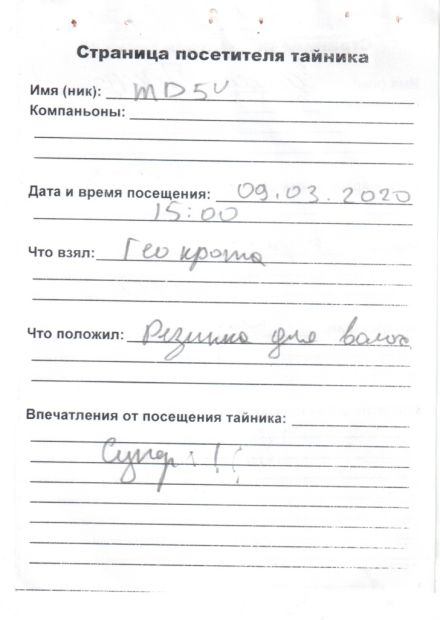 Страница посетителя тайника
Имя (ник): MD5U
Компаньоны:
Дата и время посещения: 09.03.2020
15:00
Что взял: Гео крота
Что положил: Резинка для волос
Впечатления от посещения тайника:
Супер!!!